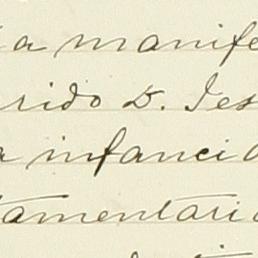 a manife
rido D. Jes
a infancia
tamentari